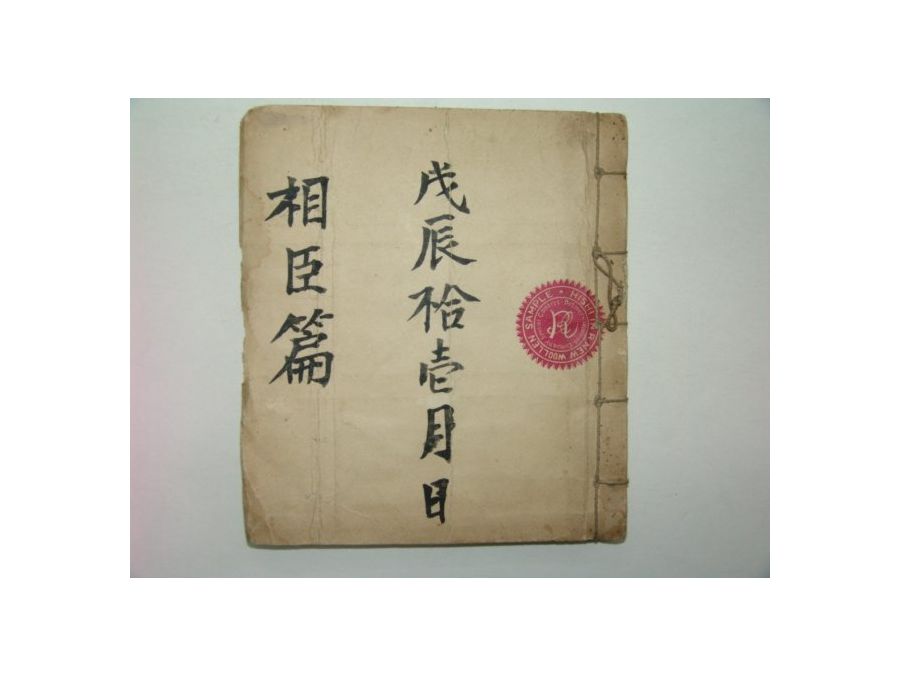 戊辰拾壹月日
相臣篇
SAMPLE
NEW WOOLLEN